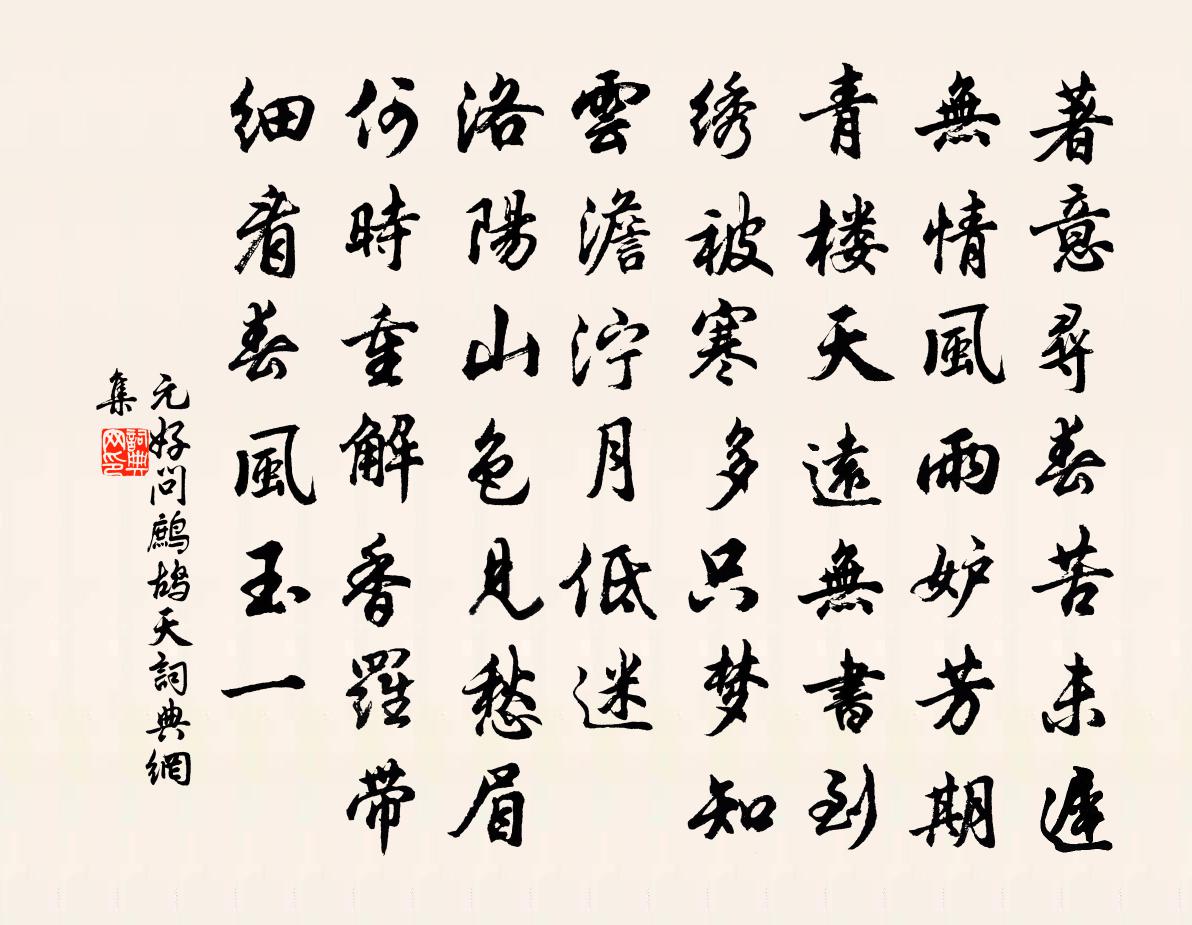 著意尋春苦未遲
無情風雨妒芳期
青楼天遠無書到
绣被寒多只梦知
雲澹泞月低迷
洛陽山色見愁眉
何時重解香羅带
细看春風玉一
元好問鷓鴣天詞典網
集
詞典
网印